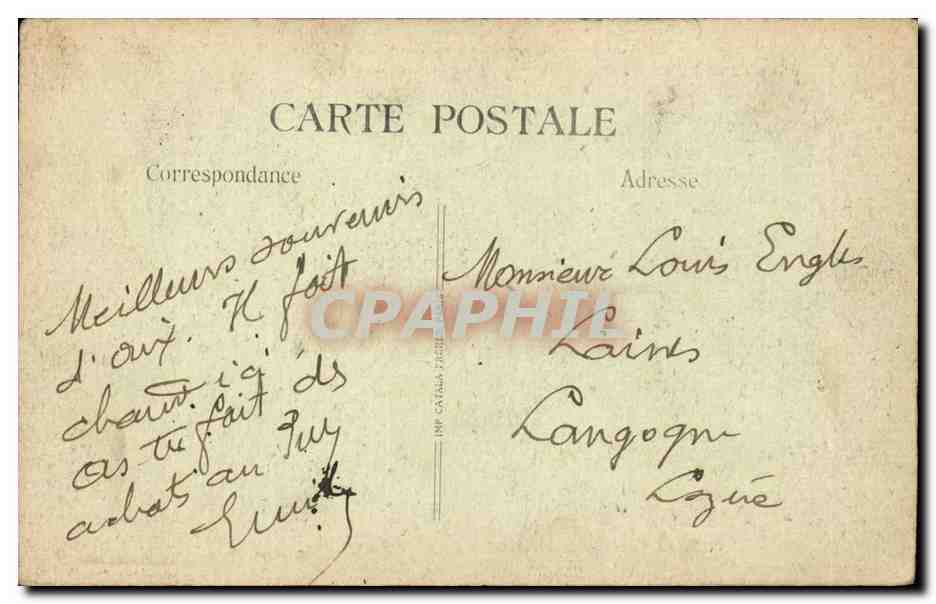 CARTE POSTALE
Correspondance
Adresse
Meilleurs souvenirs
d'aix. Il fait
chaud ici
as tu fait des
achats au Puy
Emile
Monsieur Louis Engles
Laines
Langogne
Lozère
IMP. CATALA FRERES PARIS
CPAPHIL